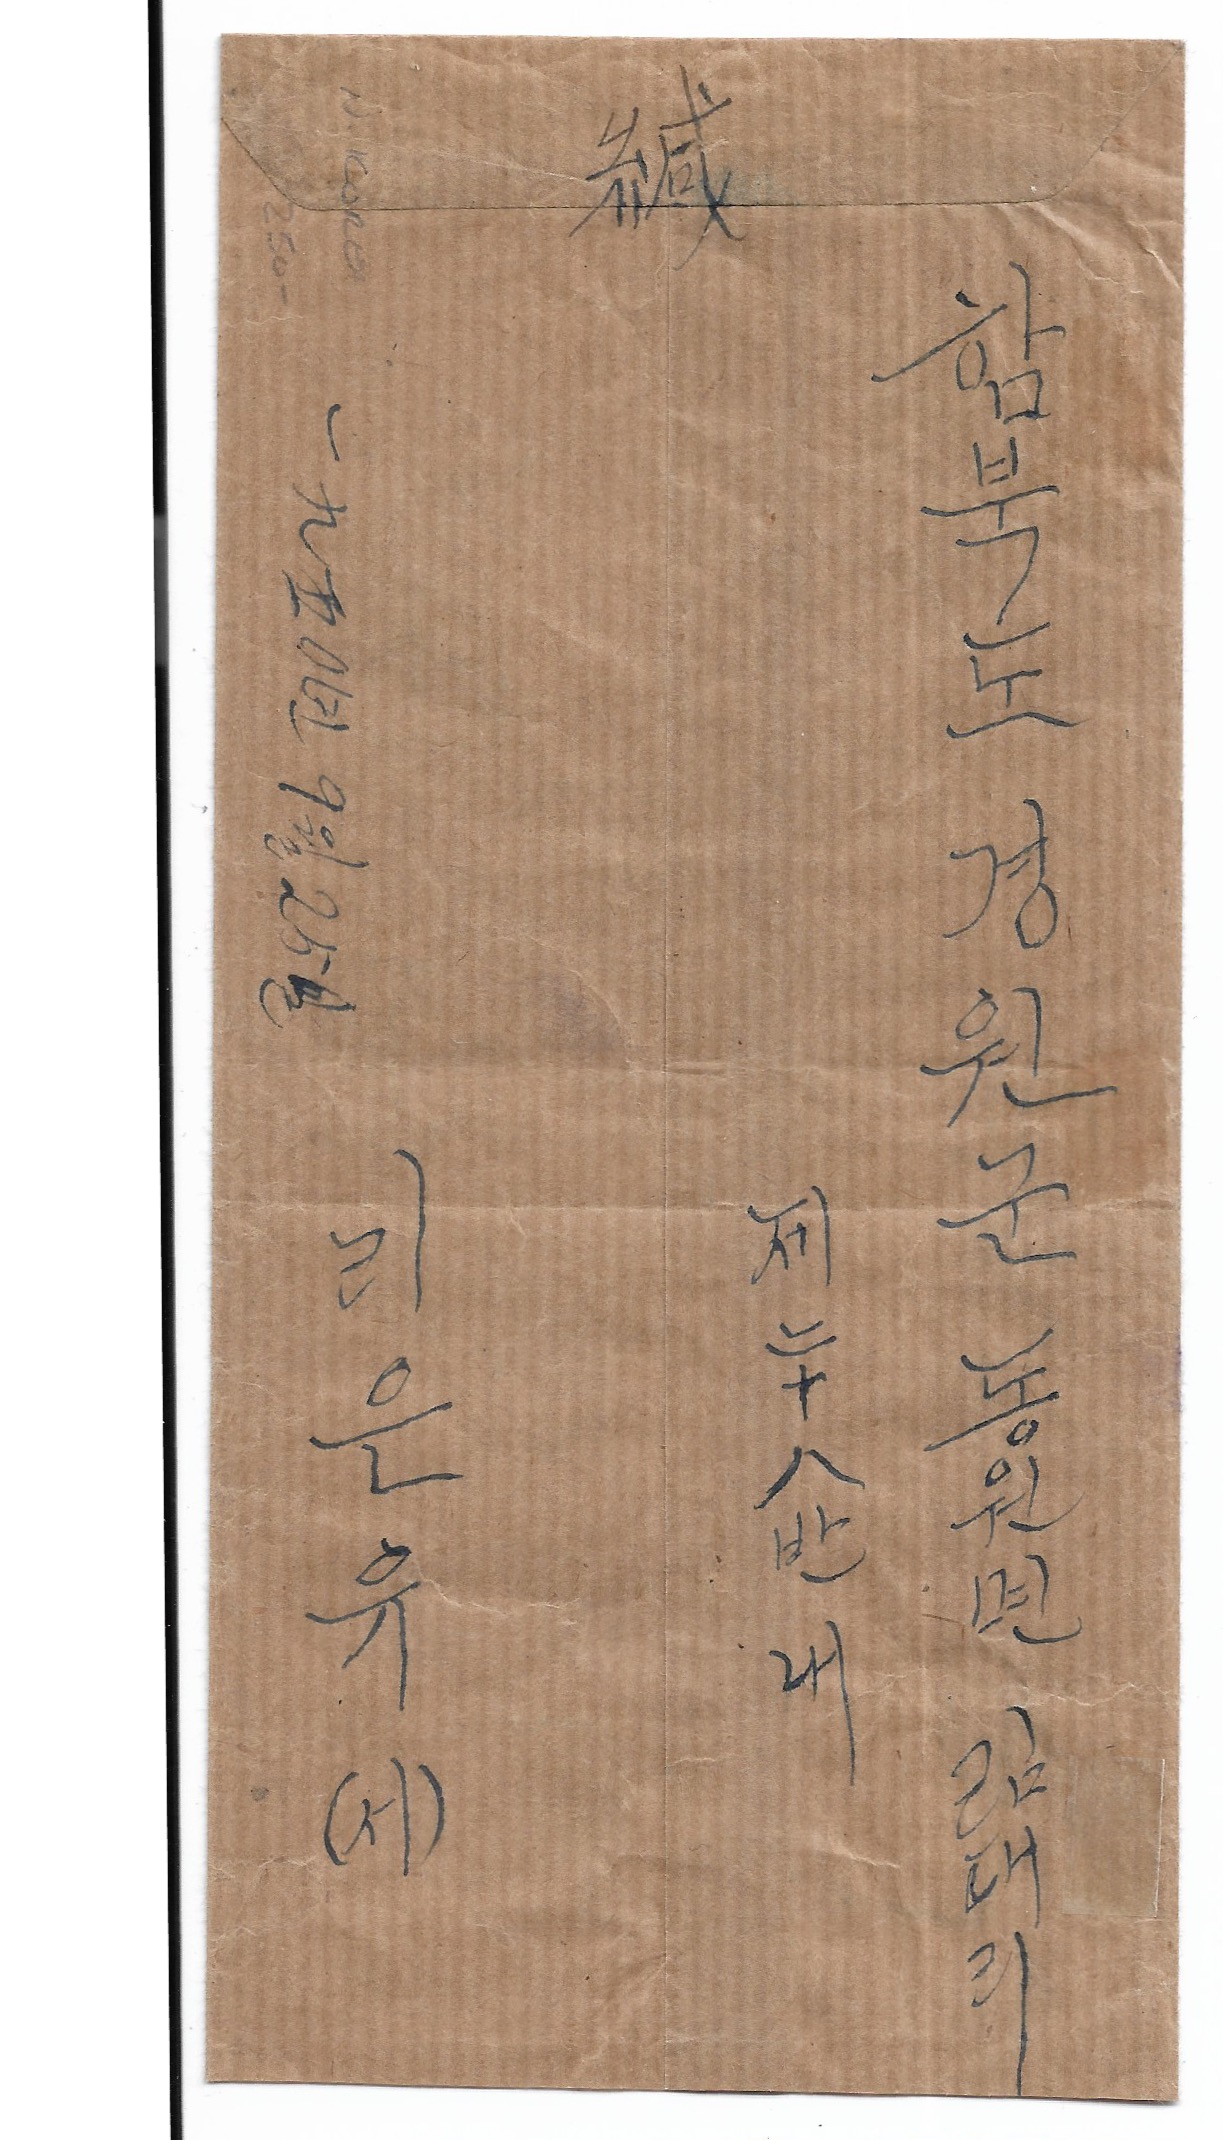 緘
함북도 경원군 동원면 림대리
제 二十八 반 내
리 은 유
一九五0년 9월 25일
N. KOREA
250-